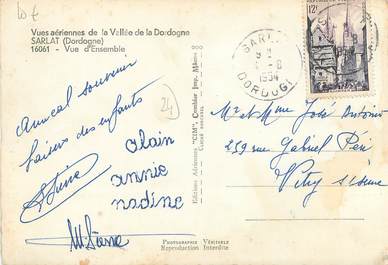 10 €
Vues aériennes de la Vallée de la Dordogne
SARLAT (Dordogne)
16061 - Vue d'Ensemble
Amical souvenir
baisers des enfants
alain
annie
nadine
24
Editions Aériennes "CIM", Combier Imp. Mâcon
PHOTOGRAPHIE VÉRITABLE
Reproduction Interdite
SARLAT
1954
DORDOGNE
12F
Mr et Mme José Antonio
259 rue Gabriel Péri
Vitry s/Seine